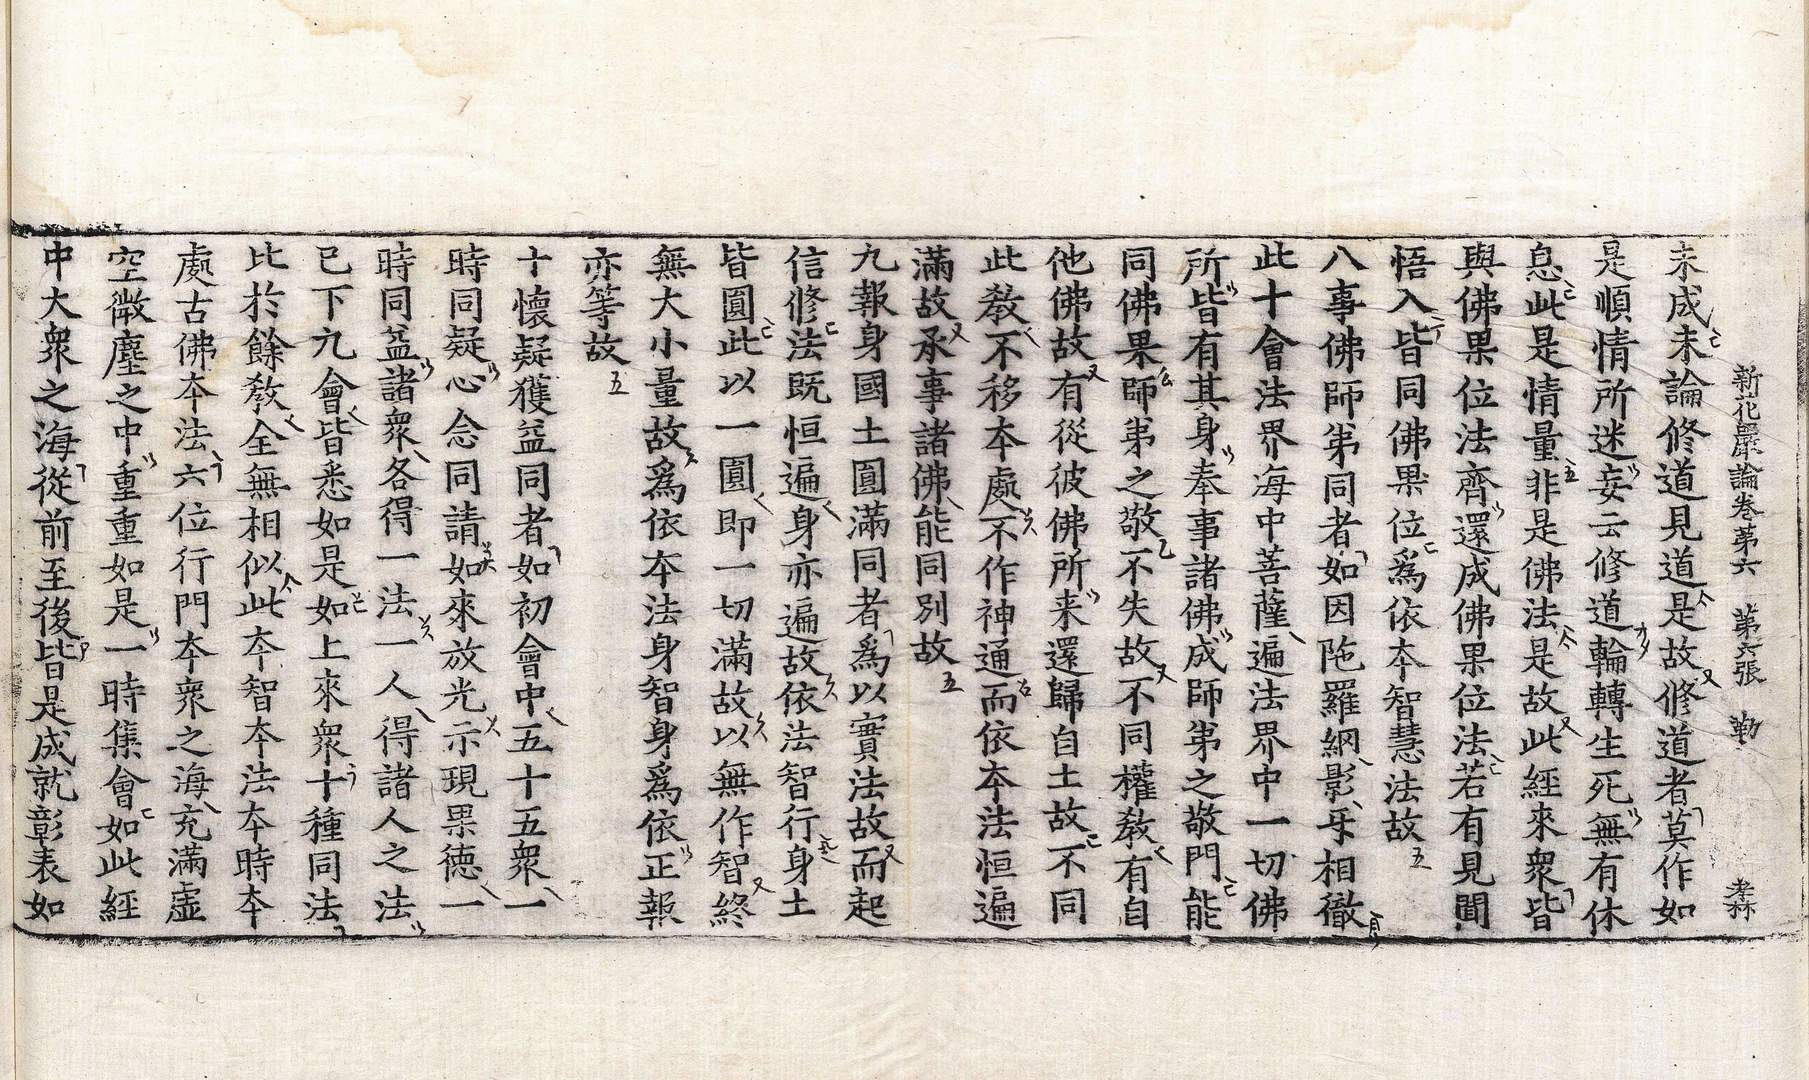 新花嚴論卷第六　第六張　勒　孝林
未成未論修道見道是故修道者莫作如
是順情所迷妄云修道輪轉生死無有休
息此是情量非是佛法是故此經來衆皆
與佛果位法齊還成佛果位法若有見聞
悟入皆同佛果位爲依本智慧法故
八事佛師弟同者如因陁羅網影㸦相徹
此十會法界海中菩薩遍法界中一切佛
所皆有其身奉事諸佛成師弟之敬門能
同佛果師弟之敬不失故不同權教有自
他佛故有從彼佛所来還歸自土故不同
此教不移本處不作神通而依本法恒遍
滿故承事諸佛能同別故
九報身國土圓滿同者爲以實法故而起
信修法既恒遍身亦遍故依法智行身土
皆圓此以一圓即一切滿故以無作智終
無大小量故爲依本法身智身爲依正報
亦等故
十懷疑獲益同者如初會中五十五衆一
時同疑心念同請如來放光示現果德一
時同益諸衆各得一法一人得諸人之法
已下九會皆悉如是如上來衆十種同法
比於餘教全無相似此本智本法本時本
處古佛本法六位行門本衆之海充滿虛
空微塵之中重重如是一時集會如此經
中大衆之海從前至後皆是成就彰表如